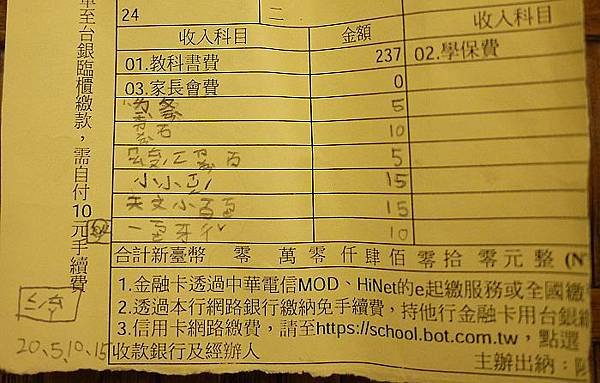 單至台銀臨櫃繳款，需自付10元手續費
24 二
收入科目 金額 收入科目
01.教科書費 237 02.學保費
03.家長會費 0
5
10
5
小小 15
天文小 15
一 牙 10
合計新臺幣 零 萬 零 仟 肆 佰 零 拾 零 元 整 (N
1.金融卡透過中華電信MOD、HiNet的e起繳服務或全國繳
2.透過本行網路銀行繳納免手續費，持他行金融卡用台銀
3.信用卡網路繳費，請至https://school.bot.com.tw，點選
20.5.10.15
收款銀行及經辦人 主辦出納：